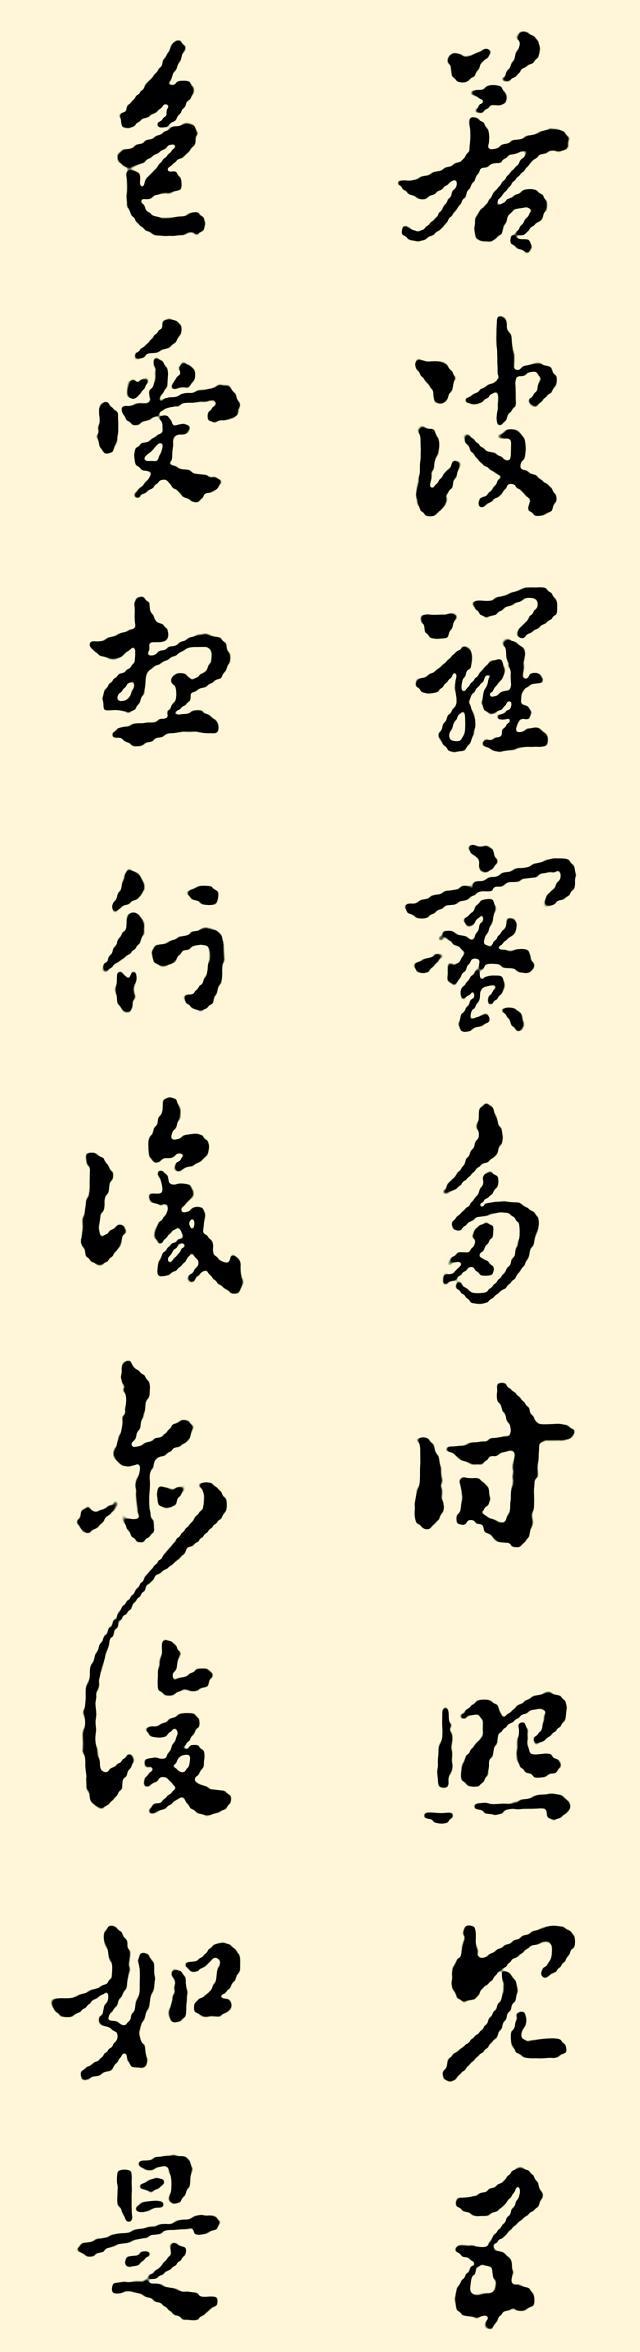 若波羅蜜多時照見五
色受想行識亦復如是